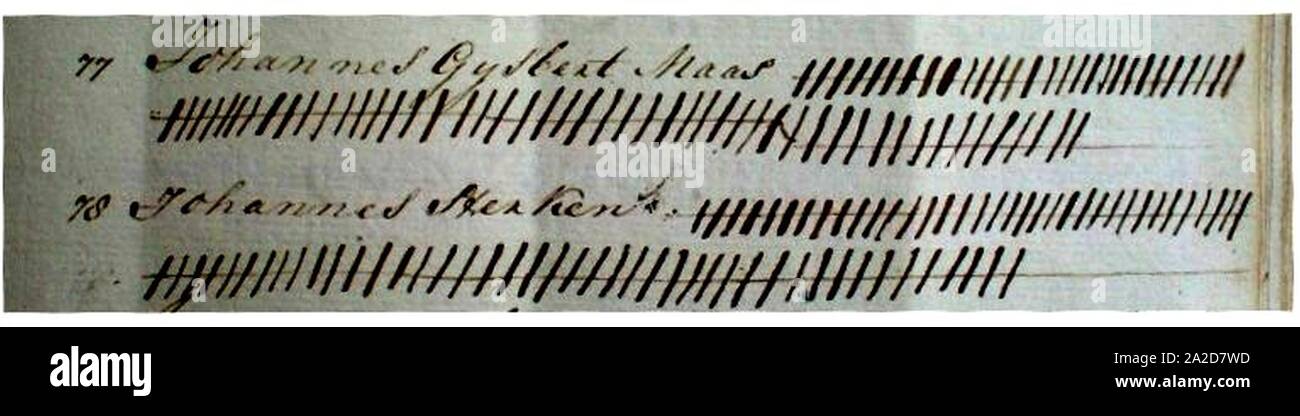 77 Johannes Gysbert Maas
78 Johannes Sterken
alamy
Image ID: A2D7WD
www.alamy.com